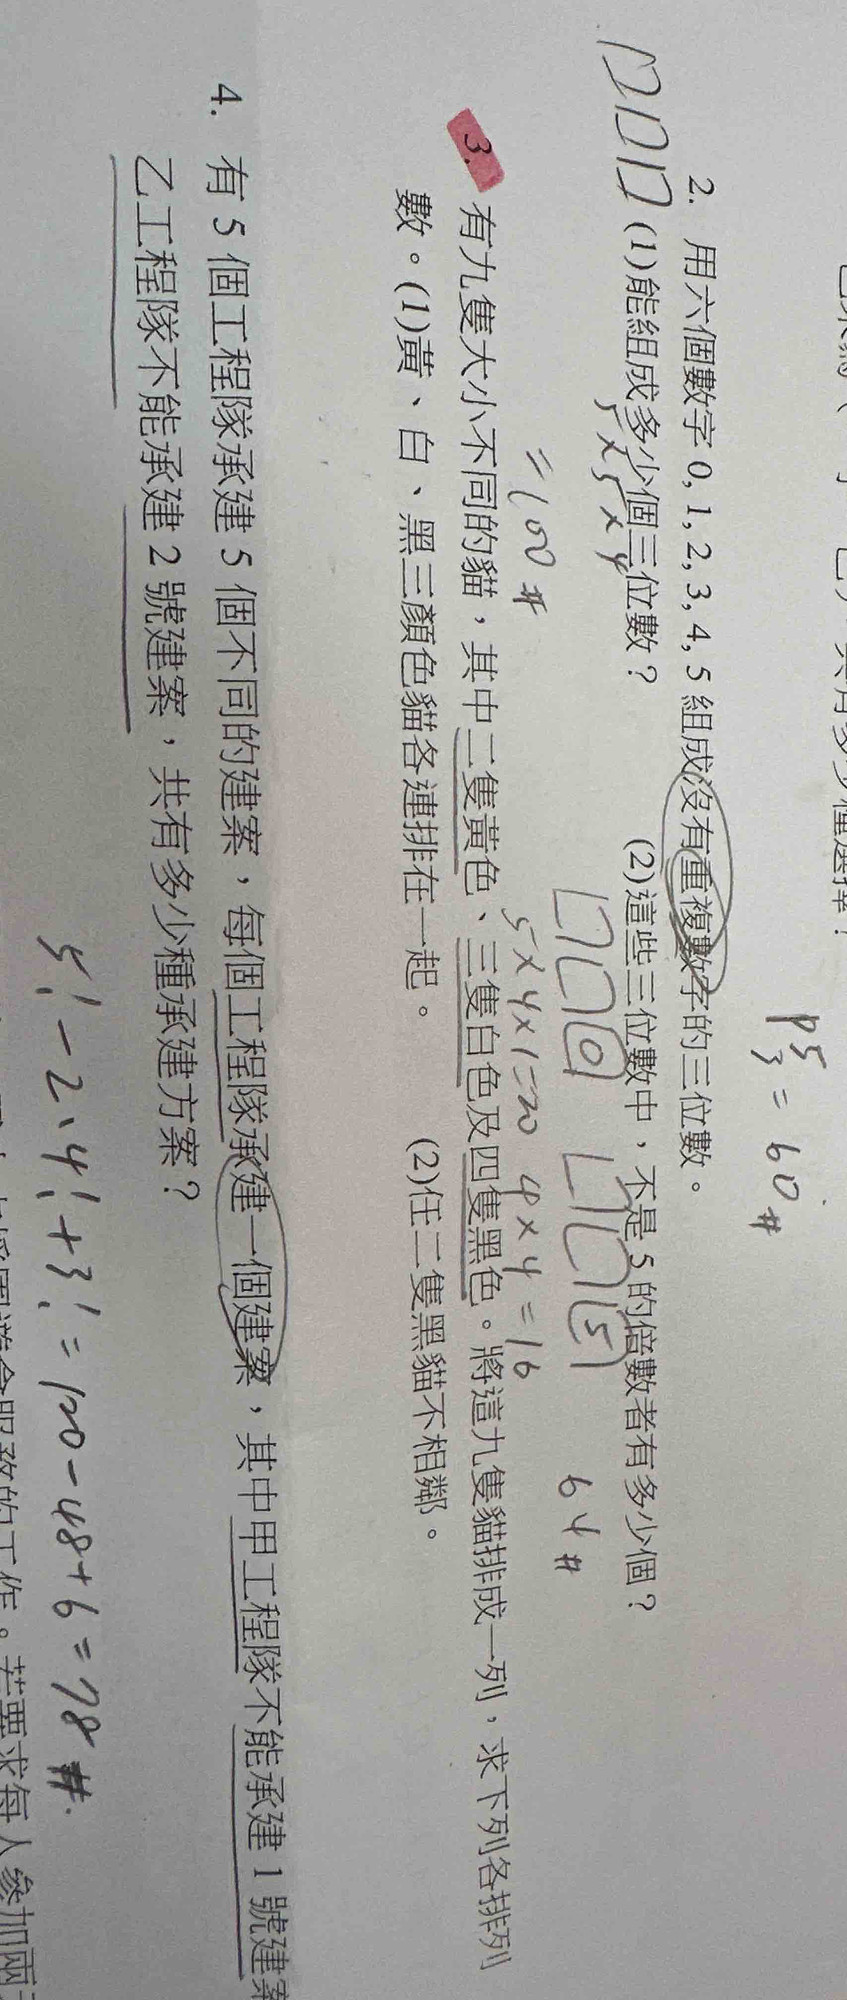 P⁵₃ = 60 #
2. 用六個數字 0, 1, 2, 3, 4, 5 組成沒有重複數字的三位數。
(1)能組成多少個三位數? (2)這些三位數中,不是 5 的倍數者有多少個?
5×5×4
= 100 #
0 5
5×4×1=20 4×4=16 64 #
3. 有九隻大小不同的貓,其中二隻黃色、三隻白色及四隻黑色。將這九隻貓排成一列,求下列各排列
數。(1)黃、白、黑三顏色貓各連排在一起。 (2)任二隻黑貓不相鄰。
4. 有 5 個工程隊承建 5 個不同的建案,每個工程隊承建一個建案,其中甲工程隊不能承建 1 號建案
乙工程隊不能承建 2 號建案,共有多少種承建方案?
5! - 2·4! + 3! = 120 - 48 + 6 = 78 #
服務的工作。若要求每人參加兩